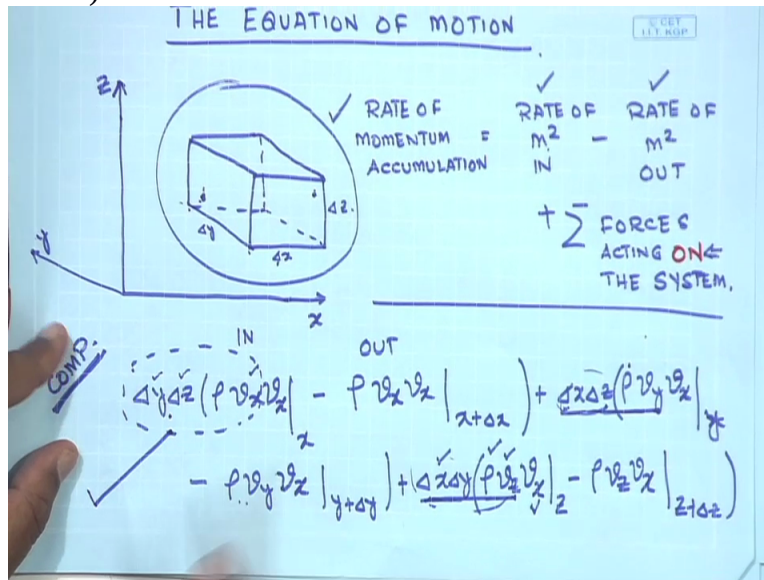 THE EQUATION OF MOTION
© CET
I.I.T. KGP
RATE OF MOMENTUM ACCUMULATION = RATE OF m² IN - RATE OF m² OUT
+ Σ FORCES ACTING ON THE SYSTEM.
z
y
x
Δy
Δx
Δz.
COMP.
IN OUT
ΔyΔz(ρvₓvₓ|ₓ - ρvₓvₓ|ₓ₊Δₓ) + ΔxΔz(ρv_y vₓ|_y
- ρv_y vₓ|_y+Δy) + (ΔxΔy(ρv_z vₓ|_z - ρv_z vₓ|_z+Δz)